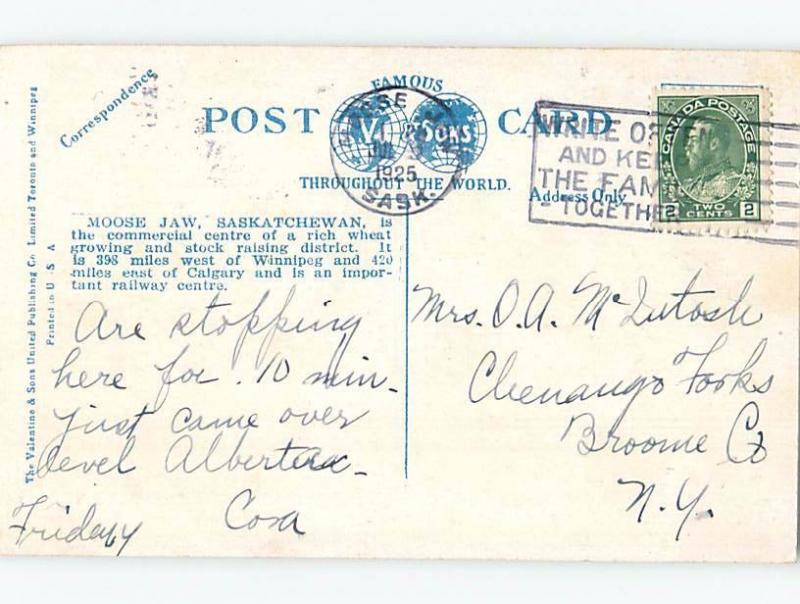 Correspondence
FAMOUS
POST CARD
V. & SONS
THROUGHOUT THE WORLD.
Address Only
MOOSE
1925
SASK.
WRITE OFTEN
AND KEEP
THE FAMILY
TOGETHER
CANADA POSTAGE
2 TWO CENTS 2
The Valentine & Sons United Publishing Co. Limited Toronto and Winnipeg
Printed in U S A
MOOSE JAW, SASKATCHEWAN, is
the commercial centre of a rich wheat
growing and stock raising district. It
is 398 miles west of Winnipeg and 420
miles east of Calgary and is an impor-
tant railway centre.
Are stopping
here for . 10 min-
just came over
level Alberta
Friday Cora
Mrs. O. A. McIntosh
Chenango Forks
Broome Co
N.Y.